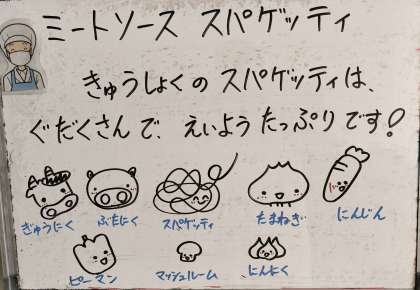 ミートソース スパゲッティ
きゅうしょくの スパゲッティは、
ぐだくさんで、えいよう たっぷりです!
ぎゅうにく ぶたにく スパゲッティ たまねぎ にんじん
ピーマン マッシュルーム にんにく